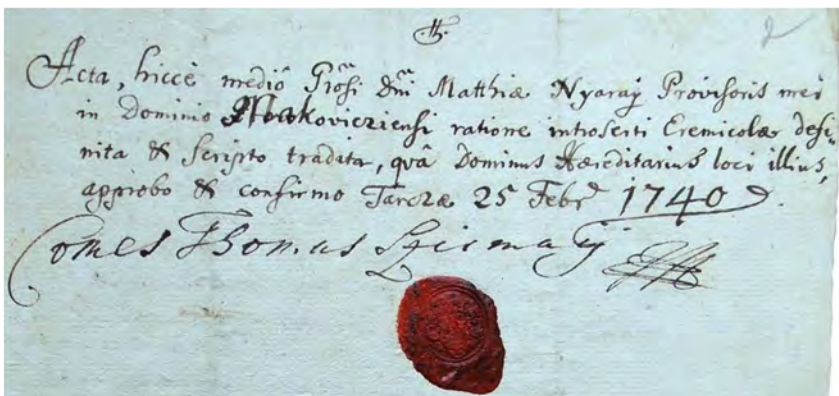 2
Acta, hiccè mediô Grõsi Dñi Matthiæ Nyaraÿ Provisoris mei
in Dominio Makovicziensi ratione introserti Eremicolæ defi-
nita & Scripto tradita, quâ Dominus Hæreditarius loci illius,
approbo & confirmo Tarczæ 25 Febr 1740.
Comes Thomas Szirmaÿ